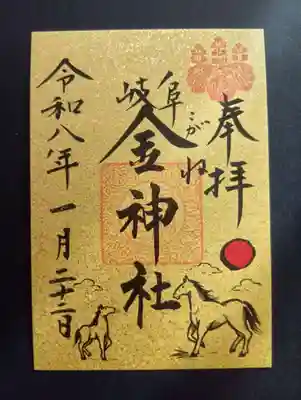 奉拝
岐阜
こがね
金神社
令和八年一月二十二日